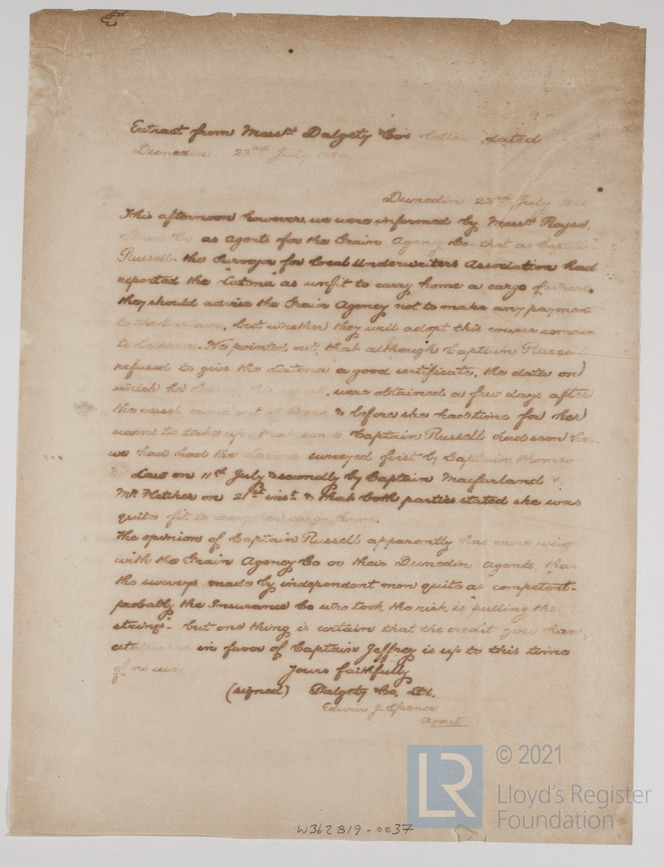 Extract from Messrs Dalgety & Co's letter dated
Dunedin 23rd July
Dunedin 23rd July
This afternoon however we were informed by Messrs Royse,
as Agents for the Grain Agency Co. that as Captain
Russell the Surveyor for Local Underwriters Association had
reported the "Catona" as unfit to carry home a cargo of
they should advise the Grain Agency not to make any payment
but whether they will adopt this course remains
to be seen. We pointed out, that although Captain Russell
refused to give the Catona a good certificate, the data on
which he based his report, were obtained a few days after
the vessel came out of Dock & before she had time for her
seams to take up that since Captain Russell had seen her
we had had the Catona surveyed first by Captain Thomson
& Law on 11th July & secondly by Captain Macfarland &
Mr. Fletcher on 21st inst. & that both parties stated she was
quite fit to carry her cargo home.
The opinion of Captain Russell apparently has more
with the Grain Agency Co or their Dunedin agents, than
the surveys made by independent men quite as competent -
probably the Insurance Co who took the risk is pulling the
strings - but one thing is certain that the credit you have
established in favor of Captain Jeffrey is up to this time
of no use.
Yours faithfully
(signed) Dalgety & Co. Ld.
Edwin J. Spence
Agent
W362819-0037
LR
© 2021
Lloyd's Register
Foundation